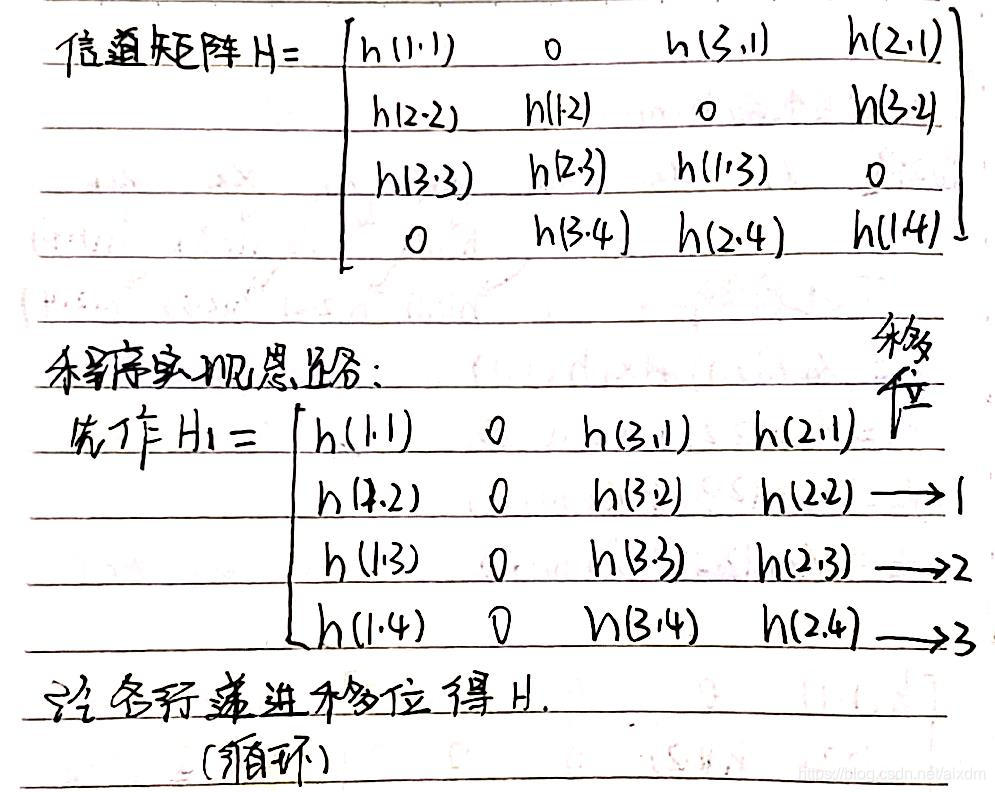 信道矩阵 H = [ h(1·1) 0 h(3,1) h(2,1)
h(2·2) h(1·2) 0 h(3·2)
h(3·3) h(2·3) h(1·3) 0
0 h(3·4) h(2·4) h(1·4) ]
移位
程序实现思路:
先作 H1 = [ h(1·1) 0 h(3,1) h(2,1)
h(1·2) 0 h(3·2) h(2·2) → 1
h(1·3) 0 h(3·3) h(2·3) → 2
h(1·4) 0 h(3,4) h(2,4) → 3
各行递进移位得 H.
(循环)
https://blog.csdn.net/alxdm